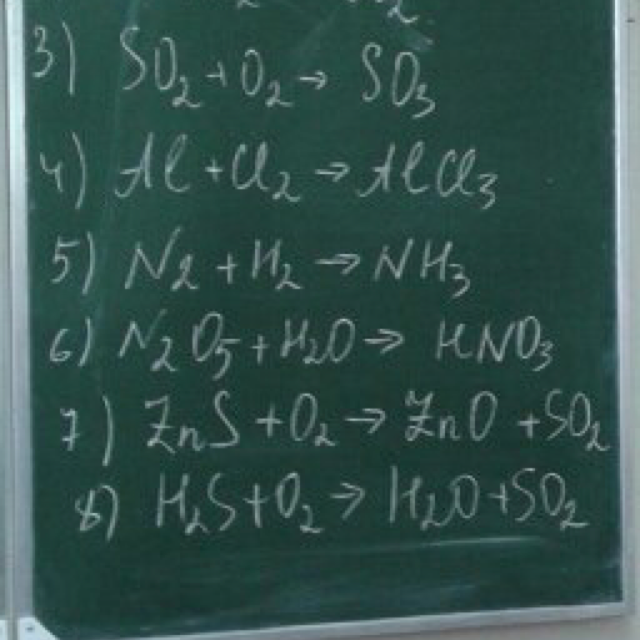 3) SO₂ + O₂ → SO₃
4) Al + Cl₂ → AlCl₃
5) N₂ + H₂ → NH₃
6) N₂O₅ + H₂O → HNO₃
7) ZnS + O₂ → ZnO + SO₂
8) H₂S + O₂ → H₂O + SO₂